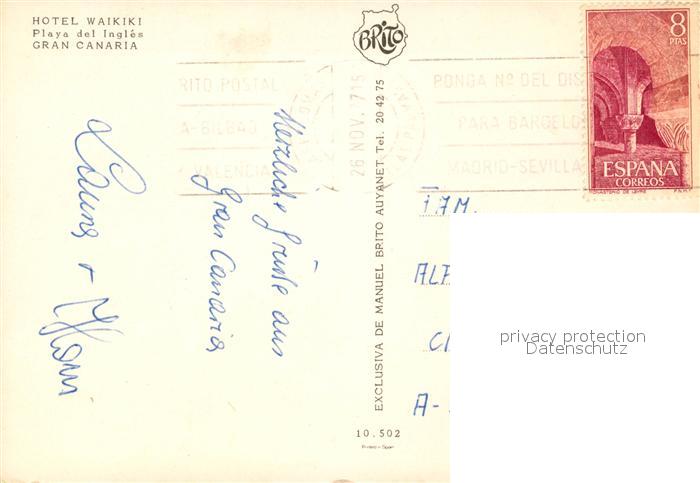 HOTEL WAIKIKI
Playa del Inglés
GRAN CANARIA
BRITO
8
PTAS
ESPAÑA
CORREOS
RITO POSTAL
A-BILBAO
VALENCIA
26 NOV. 71
PONGA Nº DEL DIS
PARA BARCELO
MADRID-SEVILLA
Herzliche Grüße aus
Gran Canaria
EXCLUSIVA DE MANUEL BRITO AUYANET Tel. 20 42 75
FAM.
ALF
A-
privacy protection
Datenschutz
10.502